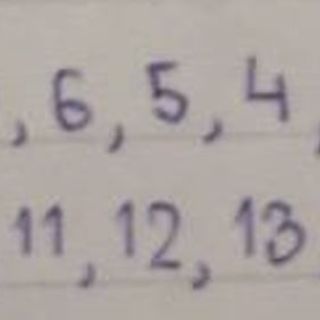 , 6, 5, 4,
11, 12, 13